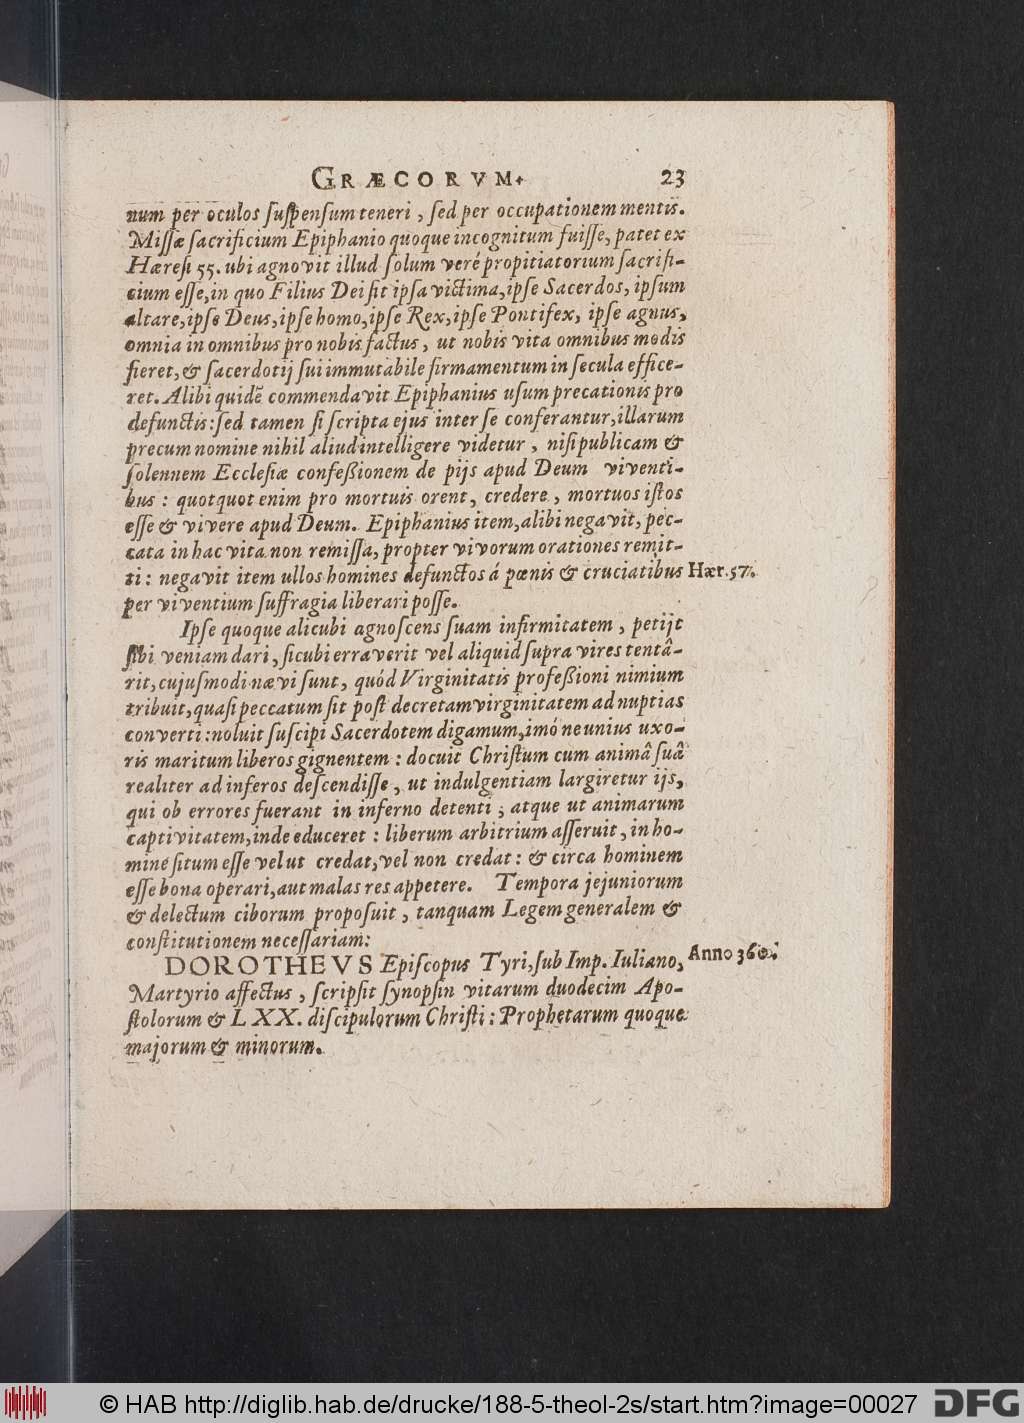 GRÆCORVM. 23
num per oculos ſuſpenſum teneri, ſed per occupationem mentis.
Miſſæ ſacrificium Epiphanio quoque incognitum fuiſſe, patet ex
Hæreſi 55. ubi agnovit illud ſolum veré propitiatorium ſacrifi-
cium eſſe, in quo Filius Dei ſit ipſa victima, ipſe Sacerdos, ipſum
altare, ipſe Deus, ipſe homo, ipſe Rex, ipſe Pontifex, ipſe agnus,
omnia in omnibus pro nobis factus, ut nobis vita omnibus modis
fieret, & ſacerdotij ſui immutabile firmamentum in ſecula effice-
ret. Alibi quidē commendavit Epiphanius uſum precationis pro
defunctis: ſed tamen ſi ſcripta ejus inter ſe conferantur, illarum
precum nomine nihil aliud intelligere videtur, niſi publicam &
ſolennem Eccleſiæ confeßionem de pijs apud Deum viventi-
bus: quotquot enim pro mortuis orent, credere, mortuos iſtos
eſſe & vivere apud Deum. Epiphanius item, alibi negavit, pec-
cata in hac vita non remiſſa, propter vivorum orationes remit-
ti: negavit item ullos homines defunctos á pœnis & cruciatibus Hær. 57.
per viventium ſuffragia liberari poſſe.
Ipſe quoque alicubi agnoſcens ſuam infirmitatem, petijt
ſibi veniam dari, ſicubi erraverit vel aliquid ſupra vires tentâ-
rit, cujuſmodi nævi ſunt, quód Virginitatis profeßioni nimium
tribuit, quaſi peccatum ſit poſt decretam virginitatem ad nuptias
converti: noluit ſuſcipi Sacerdotem digamum, imó ne unius uxo-
ris maritum liberos gignentem: docuit Chriſtum cum animâ ſuâ
realiter ad inferos deſcendiſſe, ut indulgentiam largiretur ijs,
qui ob errores fuerant in inferno detenti, atque ut animarum
captivitatem, inde educeret: liberum arbitrium aſſeruit, in ho-
mine ſitum eſſe vel ut credat, vel non credat: & circa hominem
eſſe bona operari, aut malas res appetere. Tempora jejuniorum
& delectum ciborum propoſuit, tanquam Legem generalem &
conſtitutionem neceſſariam:
DOROTHEVS Epiſcopus Tyri, ſub Imp. Iuliano, Anno 360.
Martyrio affectus, ſcripſit ſynopſin vitarum duodecim Apo-
ſtolorum & LXX. diſcipulorum Chriſti: Prophetarum quoque
majorum & minorum.
© HAB http://diglib.hab.de/drucke/188-5-theol-2s/start.htm?image=00027 DFG